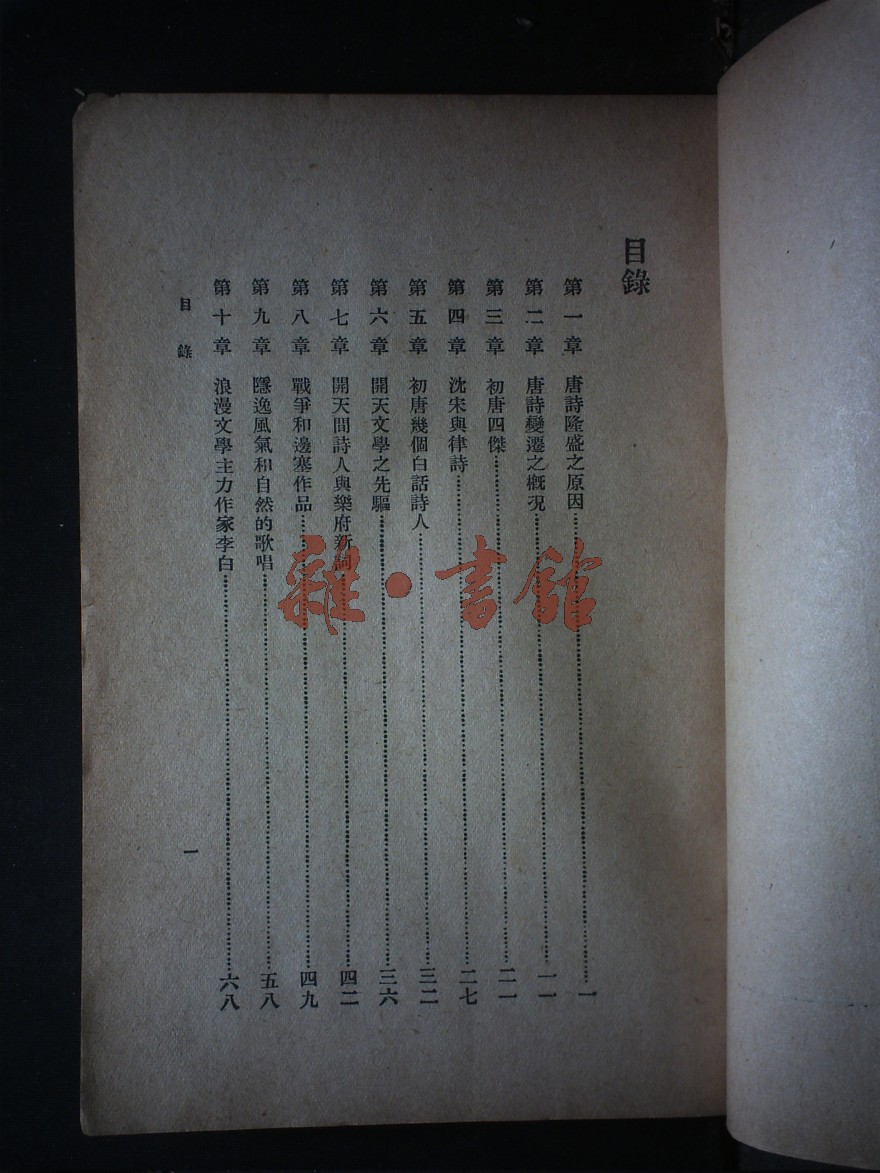 目錄
第一章 唐詩隆盛之原因……一
第二章 唐詩變遷之概況……一一
第三章 初唐四傑……二一
第四章 沈宋與律詩……二七
第五章 初唐幾個白話詩人……三二
第六章 開天文學之先驅……三六
第七章 開天間詩人與樂府新詞……四二
第八章 戰爭和邊塞作品……四九
第九章 隱逸風氣和自然的歌唱……五八
第十章 浪漫文學主力作家李白……六八
目錄 一
雜·書館